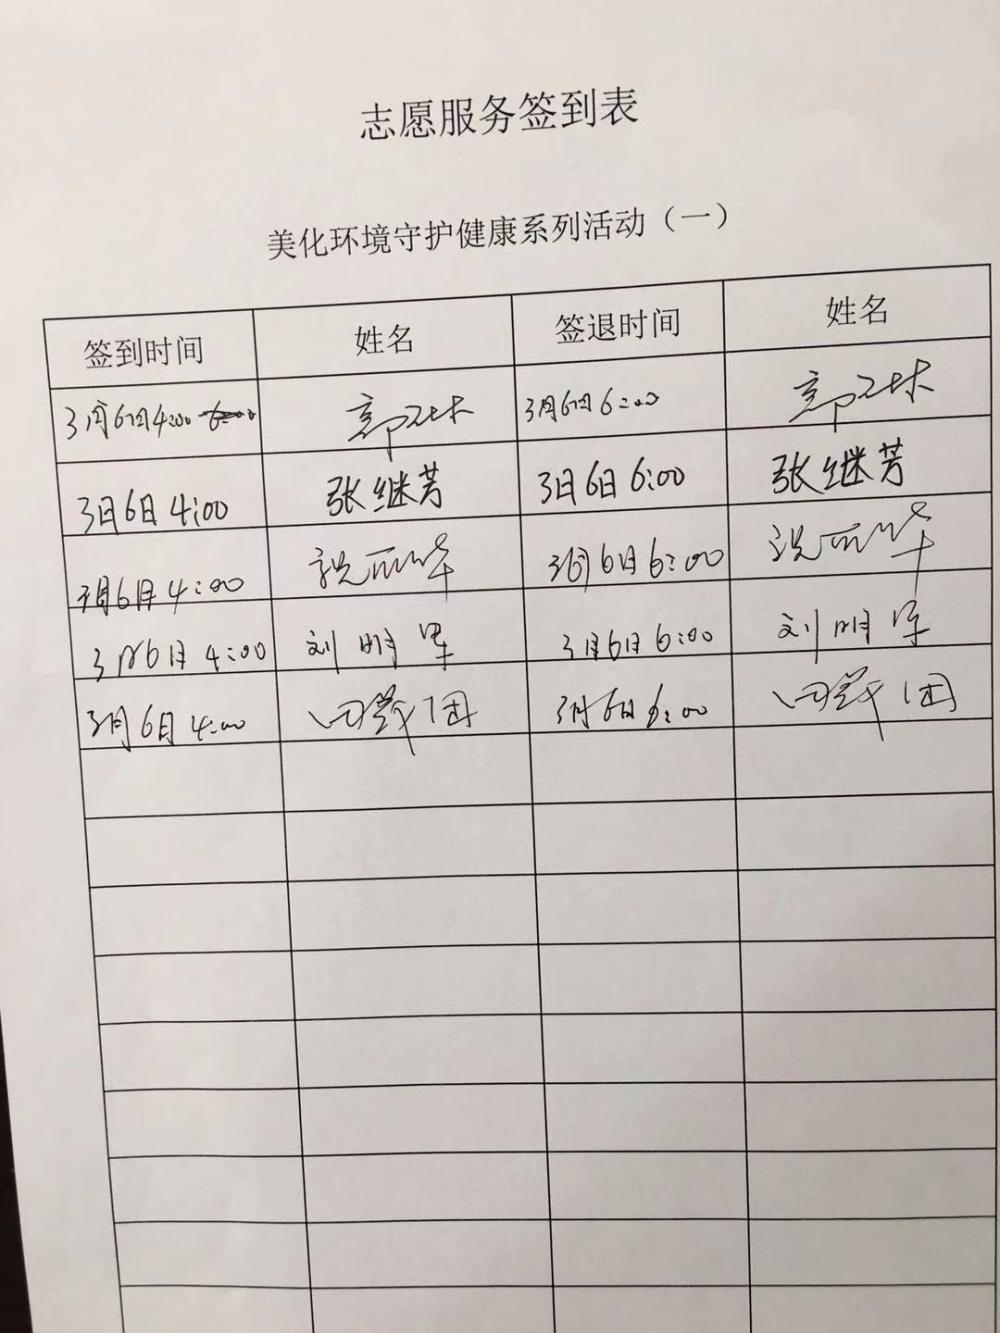 志愿服务签到表
美化环境守护健康系列活动（一）
签到时间 姓名 签退时间 姓名
3月6日4:00 3月6日6:00
3月6日4:00 张继芳 3月6日6:00 张继芳
3月6日4:00 3月6日6:00
3月6日4:00 刘明军 3月6日6:00 刘明军
3月6日4:00 3月6日6:00